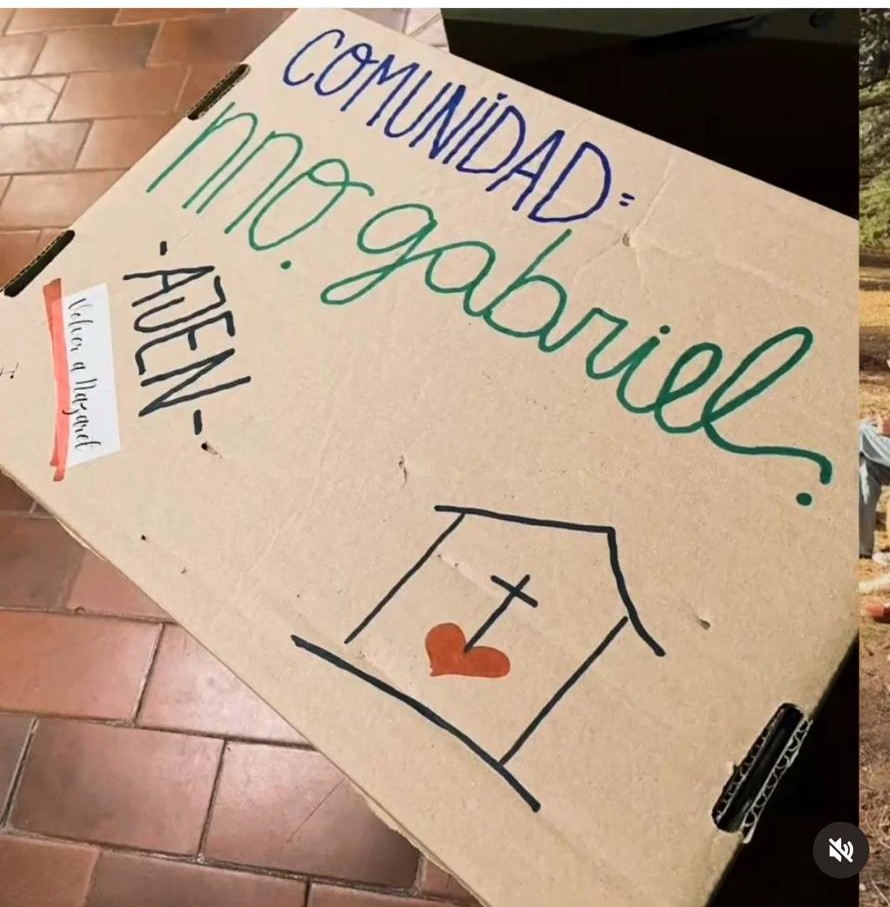 COMUNIDAD:
nno. gabriel.
-AJEN-
Volver a Nazaret